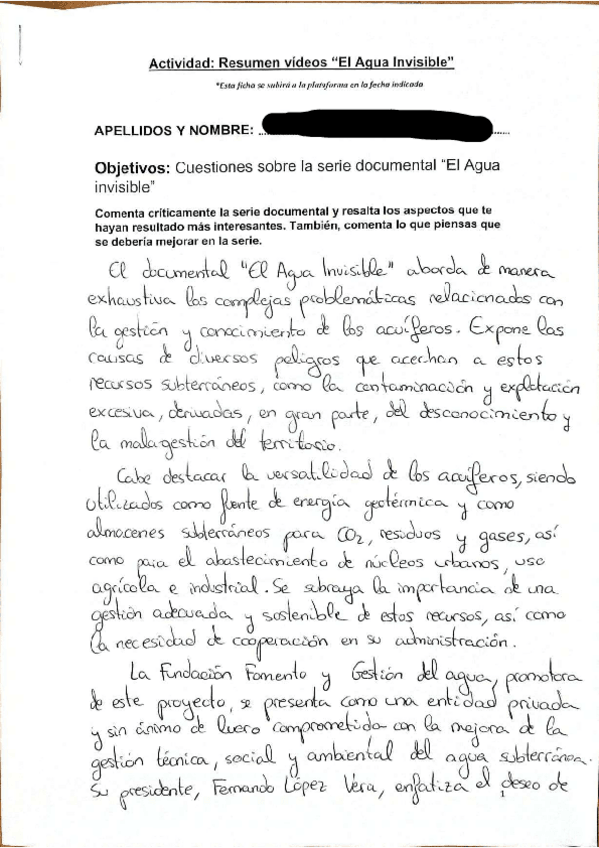 Actividad: Resumen vídeos “El Agua Invisible”
*Esta ficha se subirá a la plataforma en la fecha indicada
APELLIDOS Y NOMBRE:
Objetivos: Cuestiones sobre la serie documental “El Agua
invisible”
Comenta críticamente la serie documental y resalta los aspectos que te
hayan resultado más interesantes. También, comenta lo que piensas que
se debería mejorar en la serie.
El documental "El Agua Invisible" aborda de manera
exhaustiva las complejas problemáticas relacionados con
la gestión y conocimiento de los acuíferos. Expone las
causas de diversos peligros que acechan a estos
recursos subterráneos, como la contaminación y explotación
excesiva, derivadas, en gran parte, del desconocimiento y
la mala gestión del territorio.
Cabe destacar la versatilidad de los acuíferos, siendo
utilizados como fuente de energía geotérmica y como
almacenes subterráneos para CO2, residuos y gases, así
como para el abastecimiento de núcleos urbanos, uso
agrícola e industrial. Se subraya la importancia de una
gestión adecuada y sostenible de estos recursos, así como
la necesidad de cooperación en su administración.
La Fundación Fomento y Gestión del agua, promotora
de este proyecto, se presenta como una entidad privada
y sin ánimo de lucro comprometida con la mejora de la
gestión técnica, social y ambiental del agua subterránea.
Su presidente, Fernando López Vera, enfatiza el deseo de